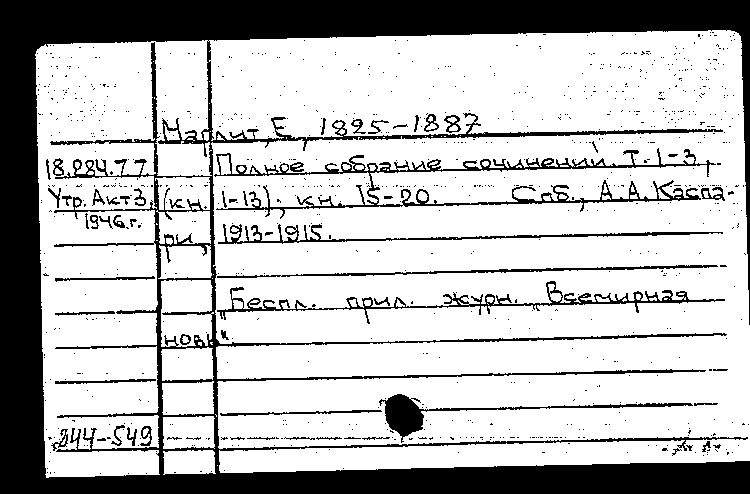 Марлит, Е, 1825-1887
18.284.7.7 Полное собрание сочинений. Т. 1-3,
Утр. Акт 3. (кн. 1-13); кн. 15-20. Спб., А.А. Каспа-
1946.г. ри, 1913-1915.
"Беспл. прил. журн. "Всемирная
новь".
344-549